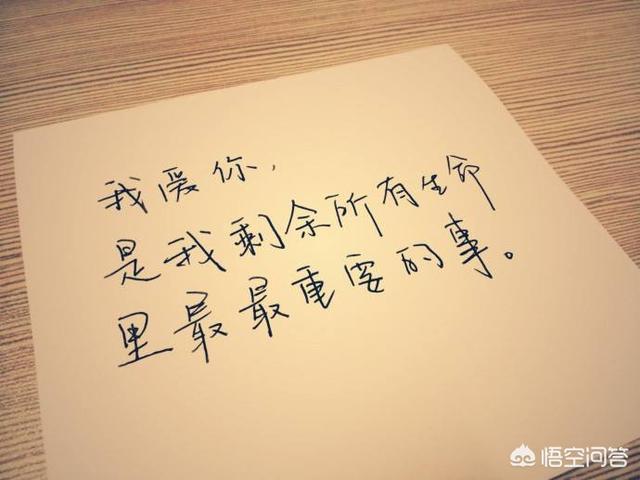 我爱你，
是我剩余所有生命
里最最重要的事。
悟空问答